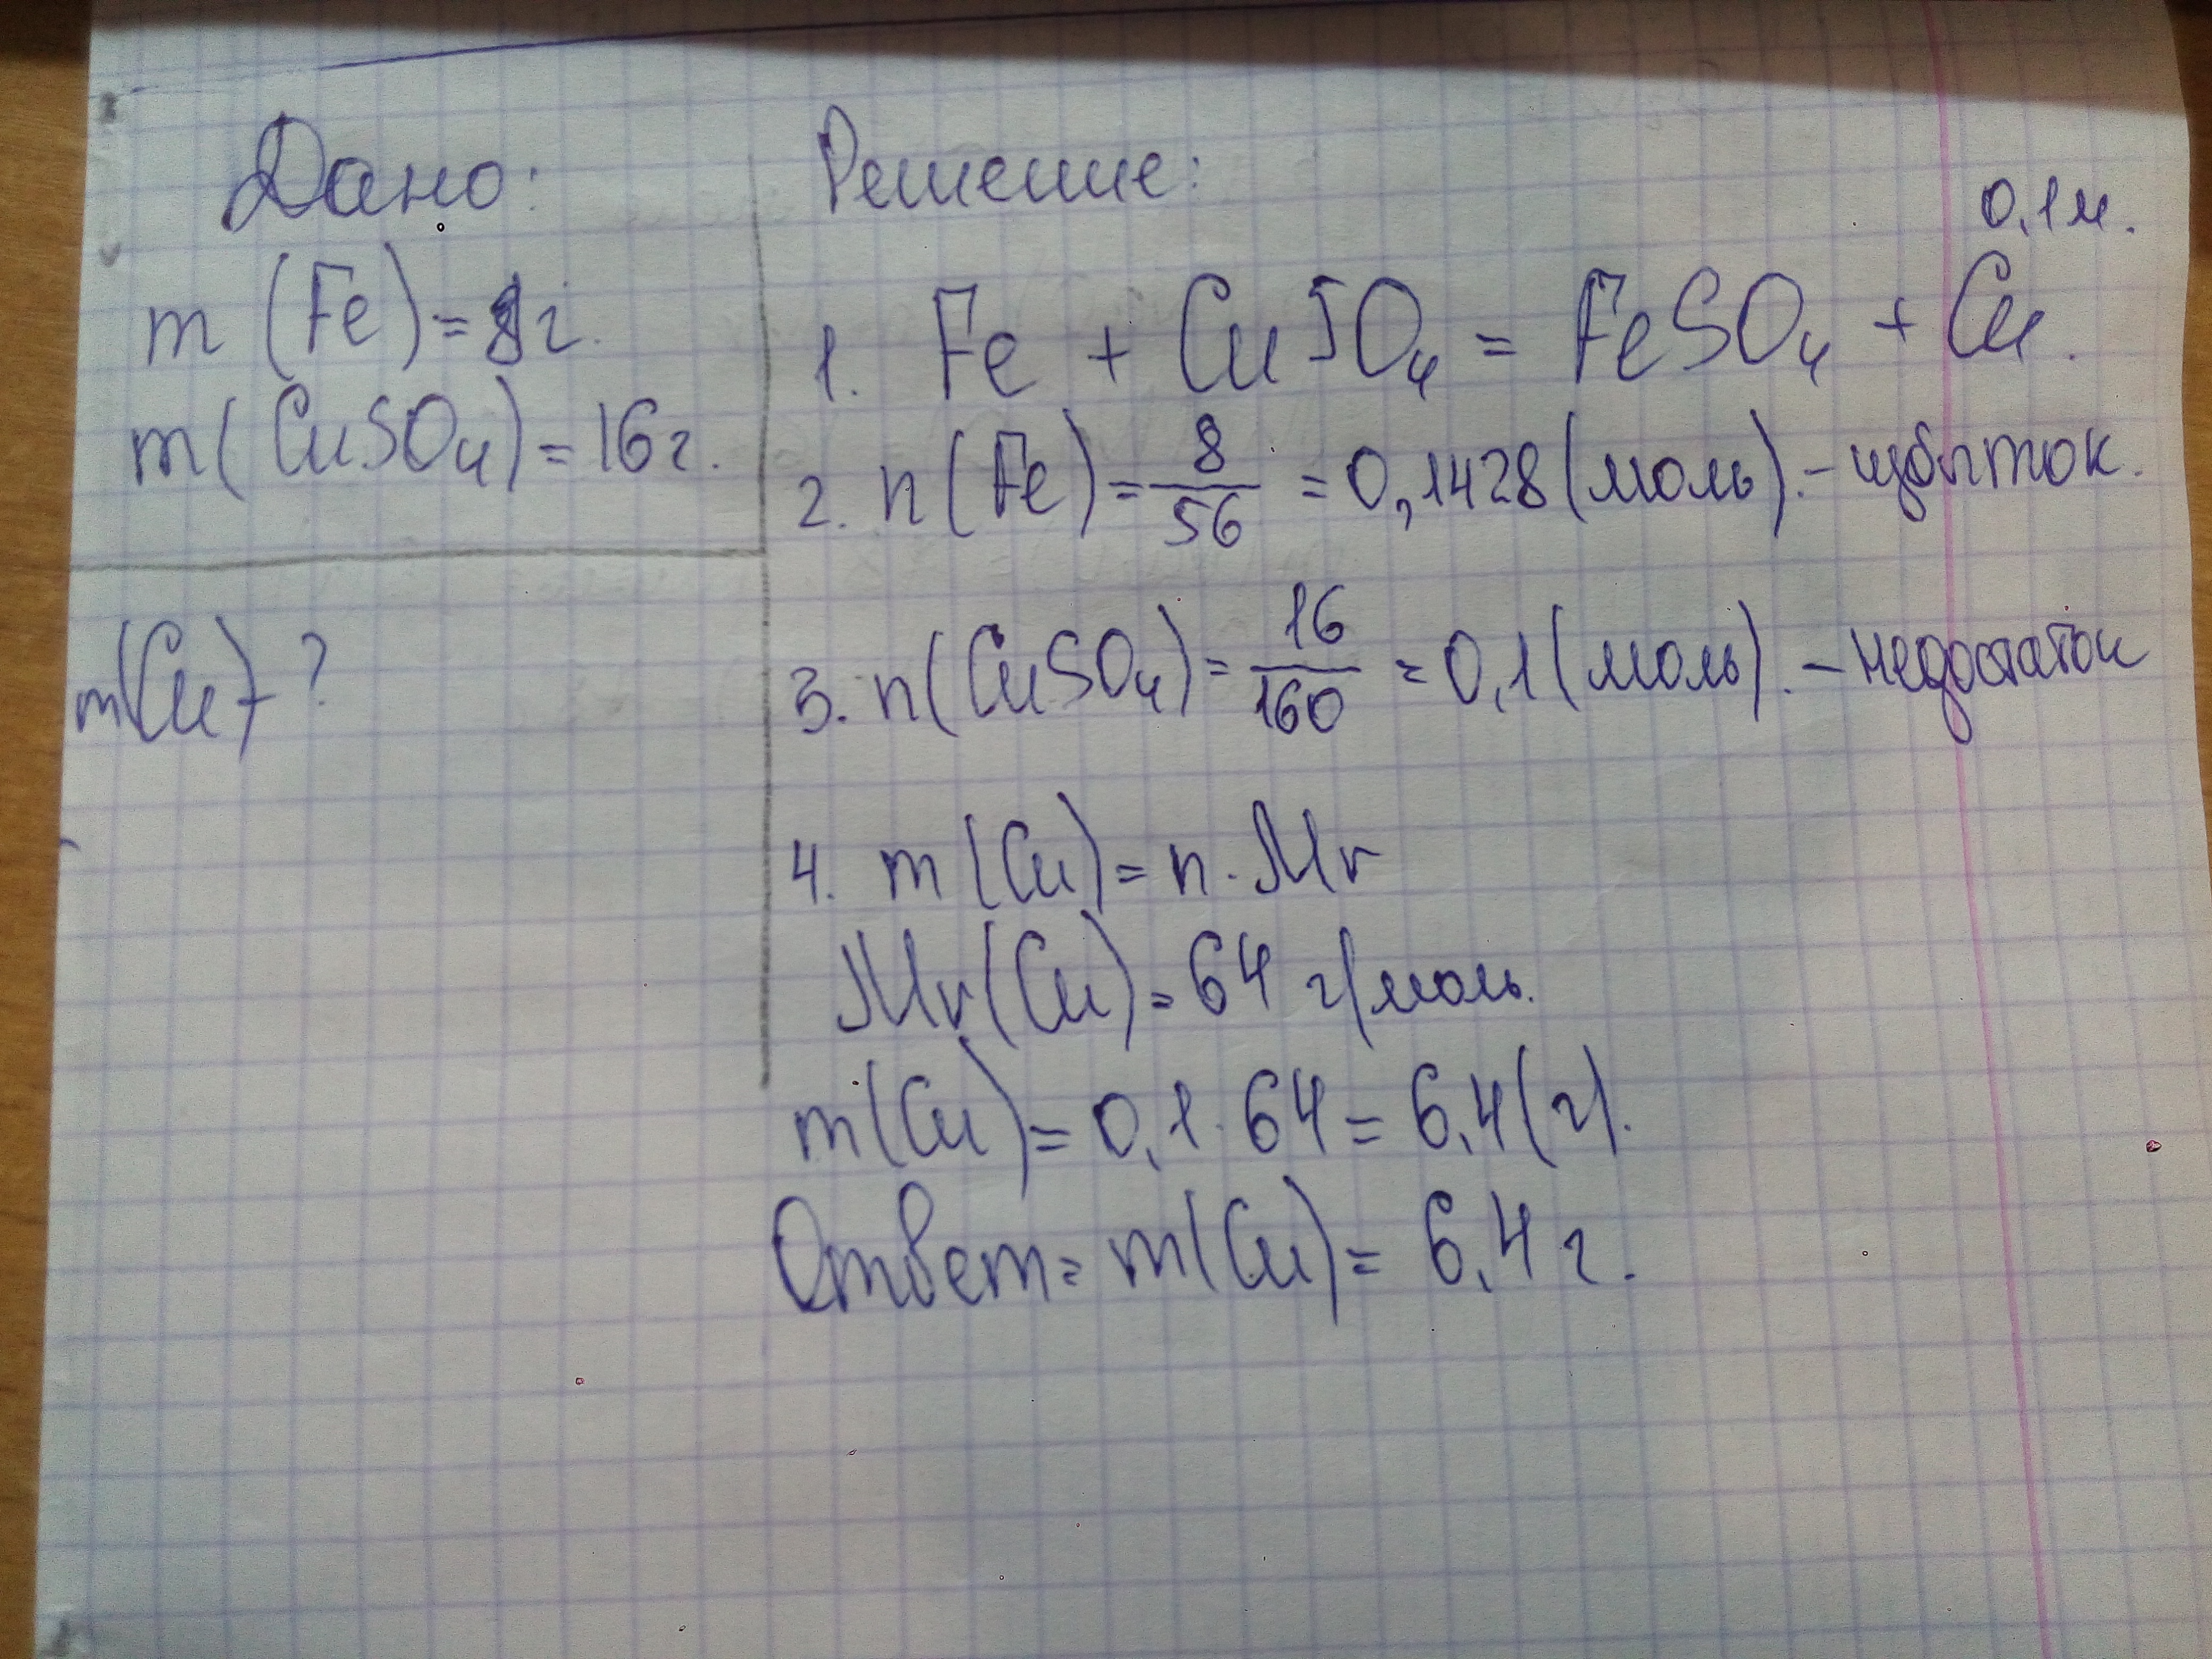 Дано:
m (Fe) = 8г.
m (CuSO₄) = 16г.
m(Cu) - ?
Решение:
0,1м.
1. Fe + CuSO₄ = FeSO₄ + Cu.
2. n (Fe) = 8/56 = 0,1428 (моль). - избыток.
3. n (CuSO₄) = 16/160 = 0,1 (моль). - недостаток
4. m (Cu) = n · Mr
Mr (Cu) = 64 г/моль.
m (Cu) = 0,1 · 64 = 6,4 (г).
Ответ: m (Cu) = 6,4 г.